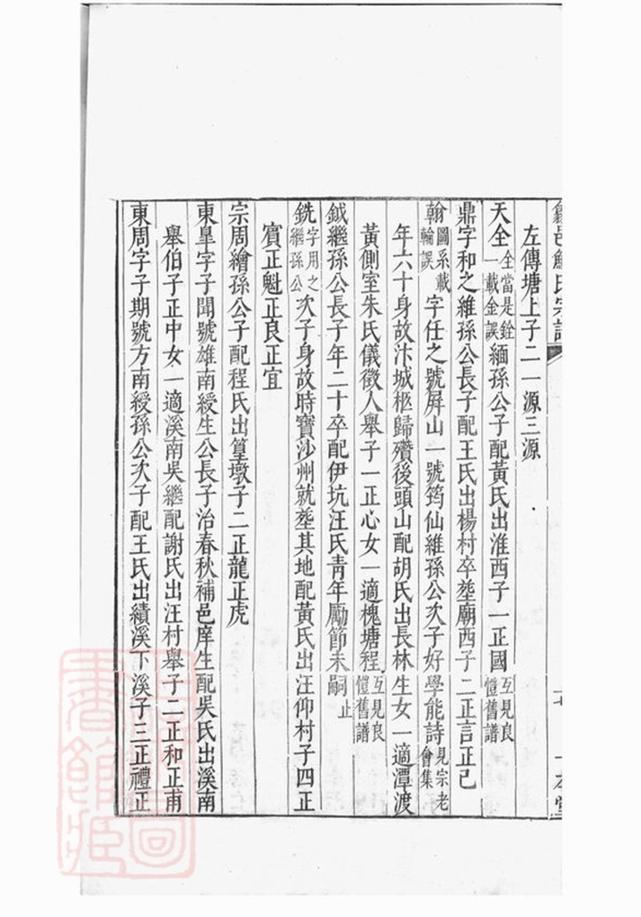 歙邑鮑氏宗譜
左傳塘上子二一源三源
天全全當是銓一載全誤緬孫公子配黃氏出淮西子一正國互見良愷舊譜
鼎字和之維孫公長子配王氏出楊村卒塟廟西子二正言正己
翰圖系載輪誤字任之號屏山一號筠仙維孫公次子好學能詩見宗老會集
年六十身故汴城柩歸殯後頭山配胡氏出長林生女一適潭渡
黃側室朱氏儀徵人舉子一正心女一適槐塘程互見良愷舊譜
鉞繼孫公長子年二十卒配伊坑汪氏青年勵節未嗣止
銑字用之繼孫公次子身故時寶沙州就塟其地配黃氏出汪仰村子四正
賓正魁正良正宜
宗周繪孫公子配程氏出篁墩子二正龍正虎
東臯字子聞號雄南綬生公長子治春秋補邑庠生配吳氏出溪南
舉伯子正中女一適溪南吳繼配謝氏出汪村舉子二正和正甫
東周字子期號方南綬孫公次子配王氏出績溪下溪子三正禮正